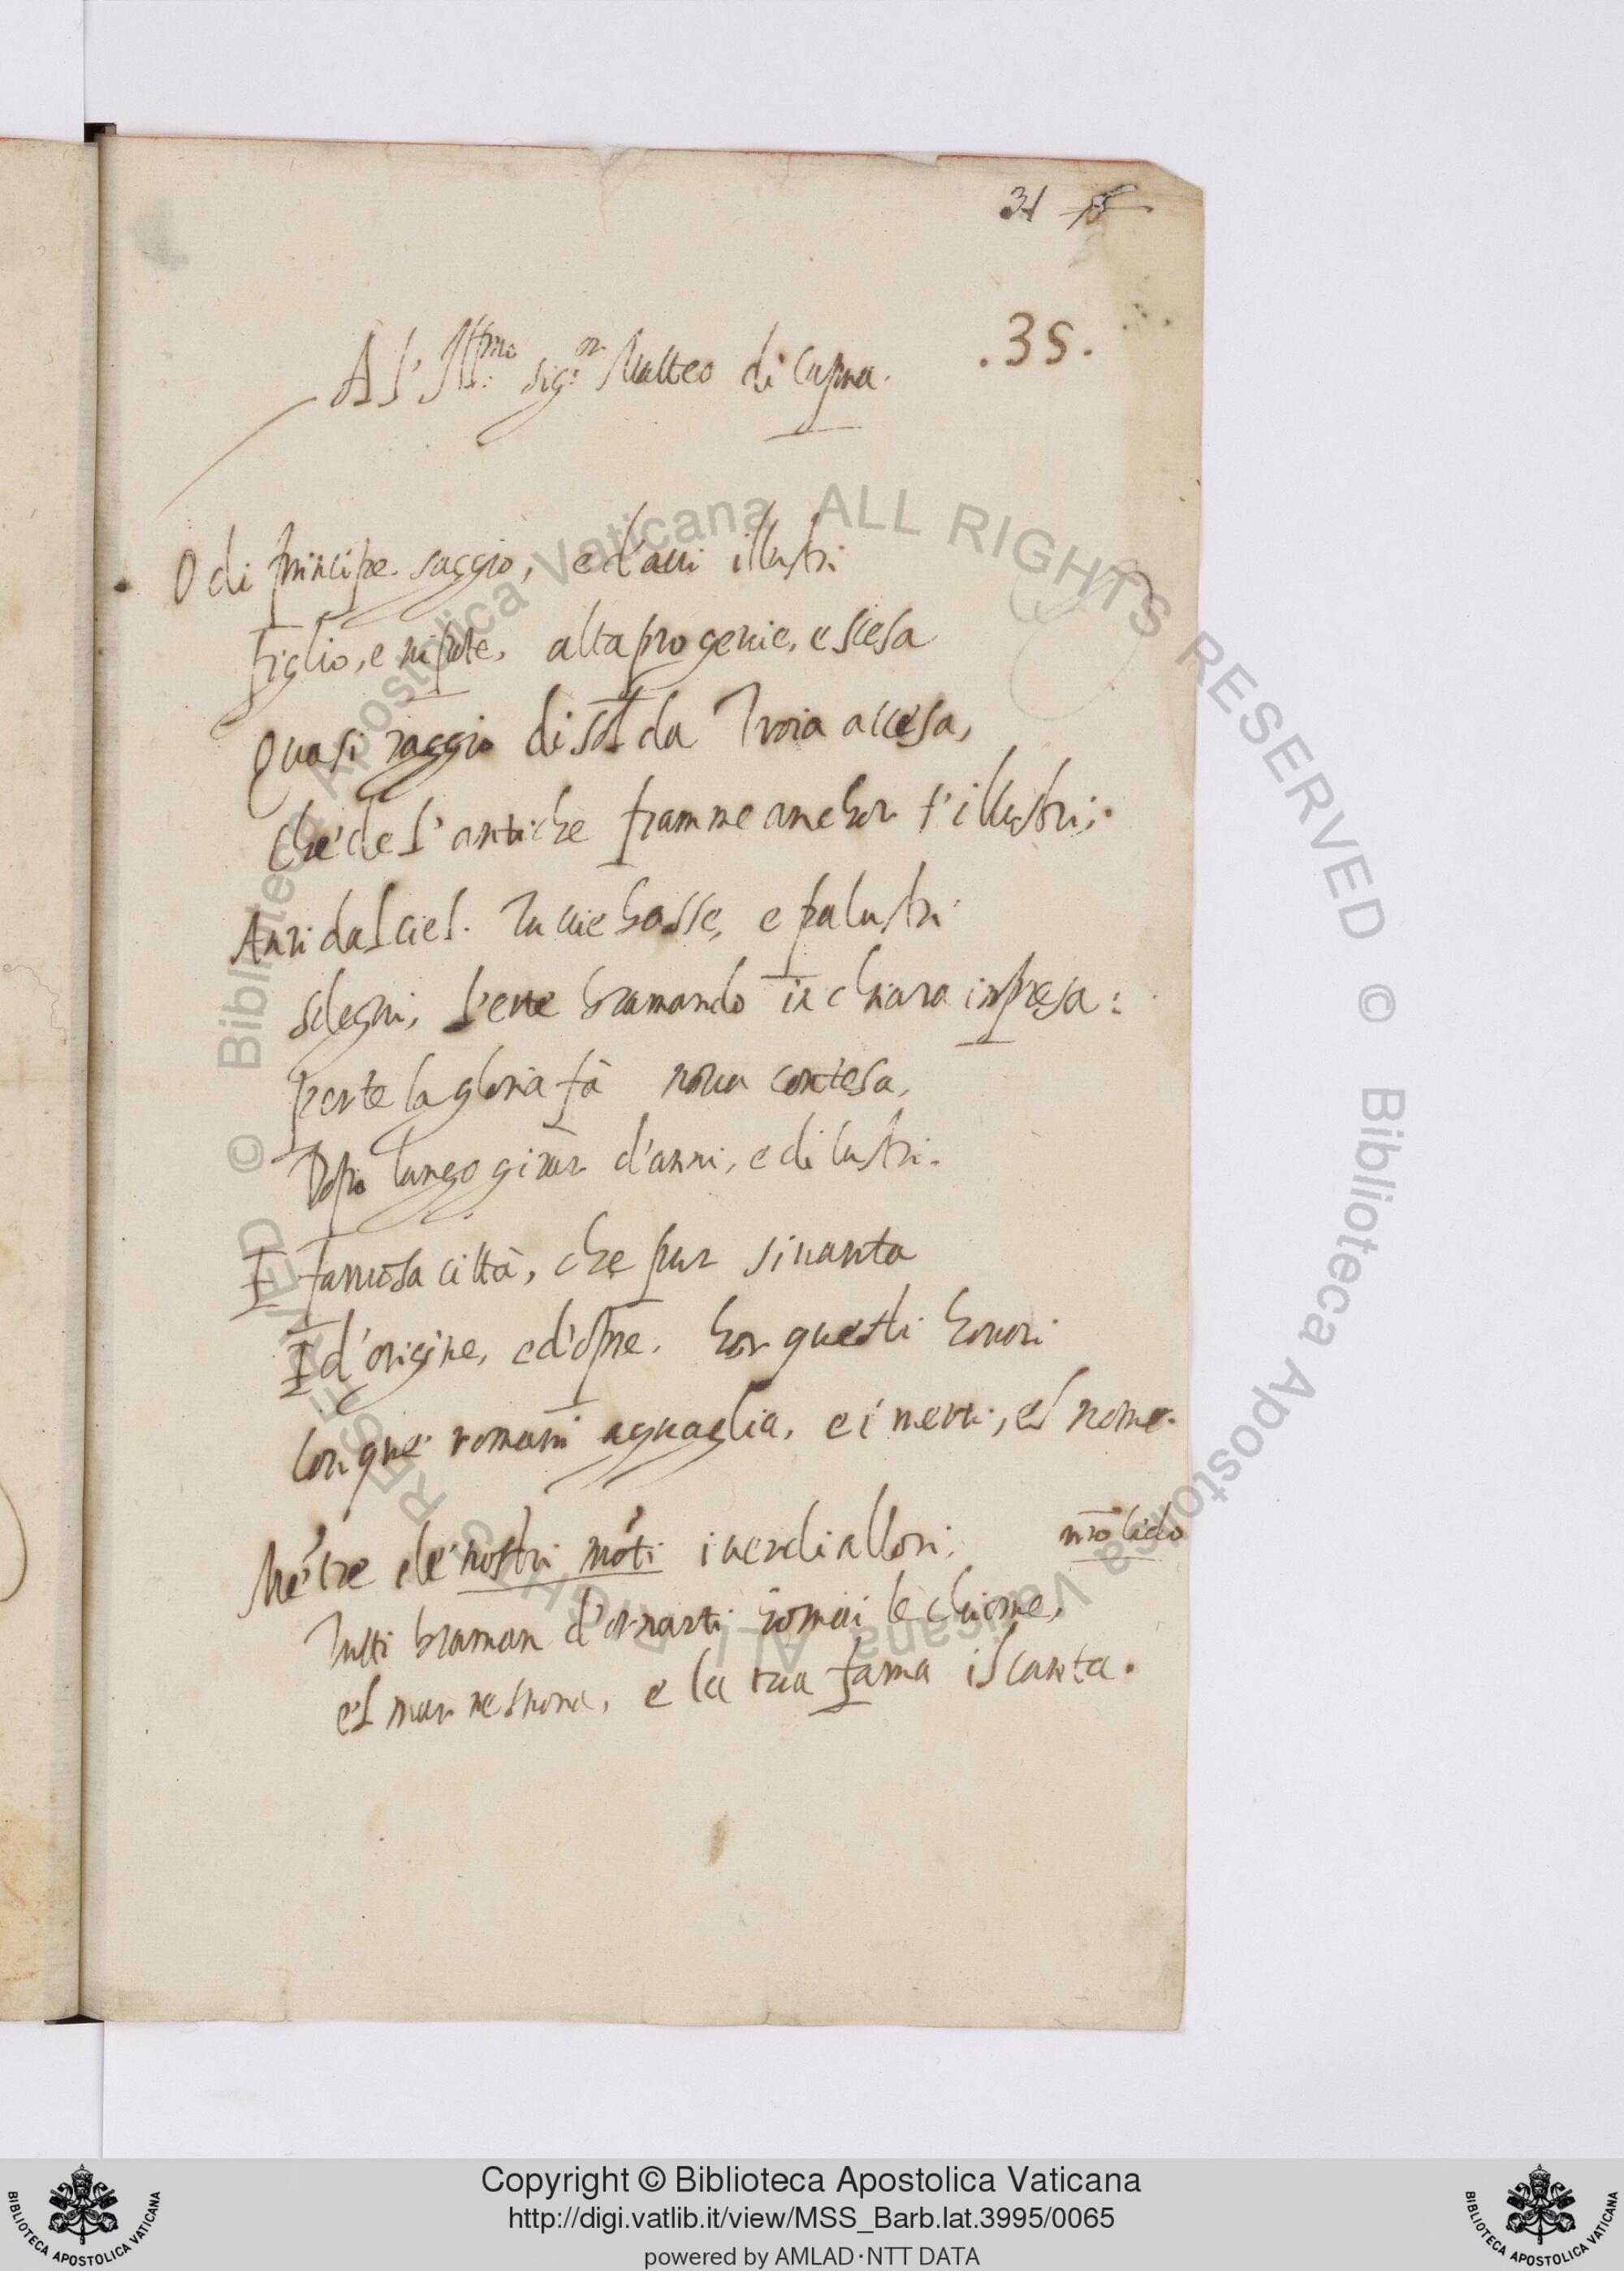 31 15
.35.
Al'Ill.mo sig.or Matteo di Capua.
O di principe saggio, e d'aui illustri
figlio, e nipote, alta progenie, e scesa
Quasi raggio di sol da Troia accesa,
Che de l'antiche fiamme anchor t'illustri;
Anzi dal ciel. Tu vie basse, e palustri
sdegni, l'erte bramando in chiara impresa:
per te la gloria fà noua contesa,
Dopo lungo girar d'anni, e di lustri.
E famosa città, che pur si uanta
E d'origine, e d'opre, hor questi honori
Con que' romani aguaglia, e i merti, el nome.
Mẽtre de' nostri mõti i uerdi allori; nr̃o lido
Tutti braman d'ornarti homai le chiome,
e'l mar ne suona, e la tua fama il canta.
Biblioteca Apostolica Vaticana ALL RIGHTS RESERVED ©
Biblioteca Apostolica Vaticana ALL RIGHTS RESERVED ©
Copyright © Biblioteca Apostolica Vaticana
http://digi.vatlib.it/view/MSS_Barb.lat.3995/0065
powered by AMLAD·NTT DATA
BIBLIOTECA APOSTOLICA VATICANA
BIBLIOTECA APOSTOLICA VATICANA